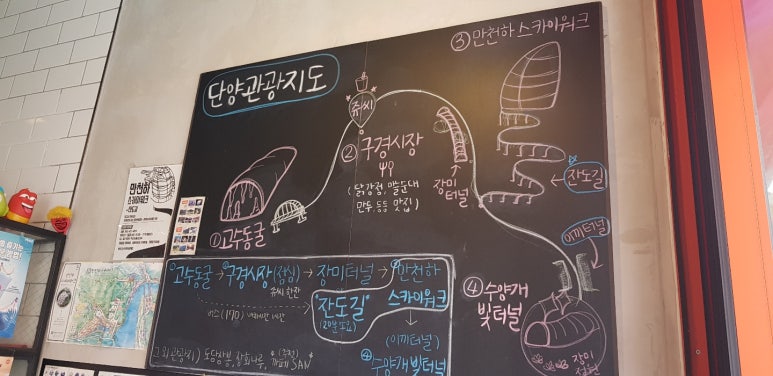 단양관광지도
③ 만천하 스카이워크
쥬씨
② 구경시장
(닭강정, 마늘순대
만두, 등등 맛집)
장미
터널
잔도길
① 고수동굴
이끼터널
④ 수양개
빛터널
장미
정원
만천하
스카이워크
고수동굴 → 구경시장(점심) → 장미터널 → 만천하
스카이워크
쥬씨 한잔
"잔도길"
버스(190)
(이끼터널)
④ 수양개빛터널
그 외 관광지) 도담삼봉,
카페 SAN"